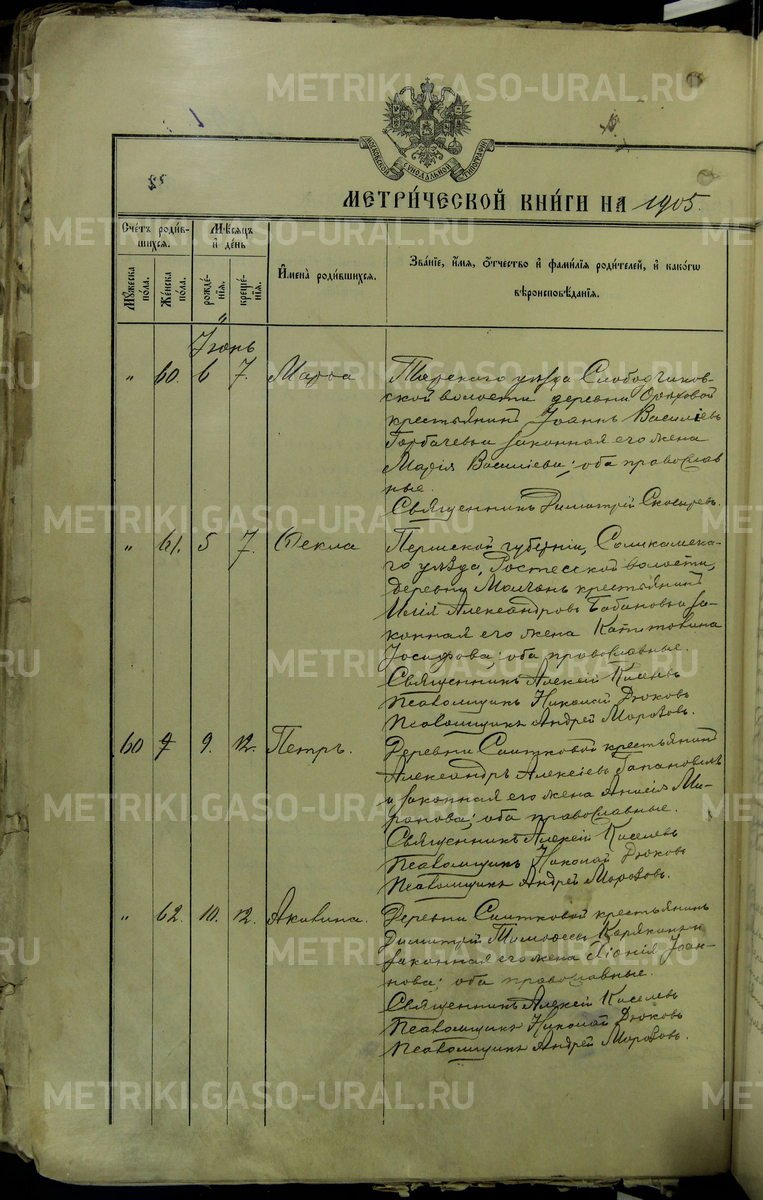 METRIKI.GASO-URAL.RU
МОСКОВСКОЙ СѴНОДАЛЬНОЙ ТИПОГРАФІИ
МЕТРИ́ЧЕСКОЙ КНИ́ГИ НА 1905.
Сче́тъ роди́в-
шихся.
Мѣ́сяцъ
и҆ де́нь
Мꙋ́жеска
по́ла.
Же́нска
по́ла.
рожде́-
нія.
креще́-
нія.
И҆мена̀ роди́вшихся.
Зва́ніе, и҆́мя, ѻ҆́тчество и҆ фами́лія роди́телей, и҆ како́гѡ
вѣроисповѣ́данія.
Іюнь
„ 60. 6 7. Марѳа
уѣзда Слободчиков-
ской волости деревни Ореховой
крестьянинъ Іоаннъ Василіевъ
Горбачевъ и законная его жена
Марія Василіева; оба православ
ные.
Священникъ Димитрій
„ 61. 5 7. Ѳекла
Пермской губерніи, Соликамска-
го уѣзда, Ростесской волости,
деревни крестьянинъ
Илія Александровъ и за-
конная его жена Капитолина
Іосифова; оба православные.
Священникъ Алексій Киселевъ
Псаломщикъ Николай Дюковъ
Псаломщикъ Андрей Морозовъ.
60 „ 9. 12. Петръ.
Деревни крестьянинъ
Александръ Алексіевъ
и законная его жена Анисія Ми-
ронова; оба православные.
Священникъ Алексій Киселевъ
Псаломщикъ Николай Дюковъ
Псаломщикъ Андрей Морозовъ.
„ 62. 10. 12. Акилина.
Деревни крестьянинъ
Димитрій Тимоѳеевъ Карякинъ и
законная его жена Іоан-
нова; оба православные.
Священникъ Алексій Киселевъ
Псаломщикъ Николай Дюковъ
Псаломщикъ Андрей Морозовъ.